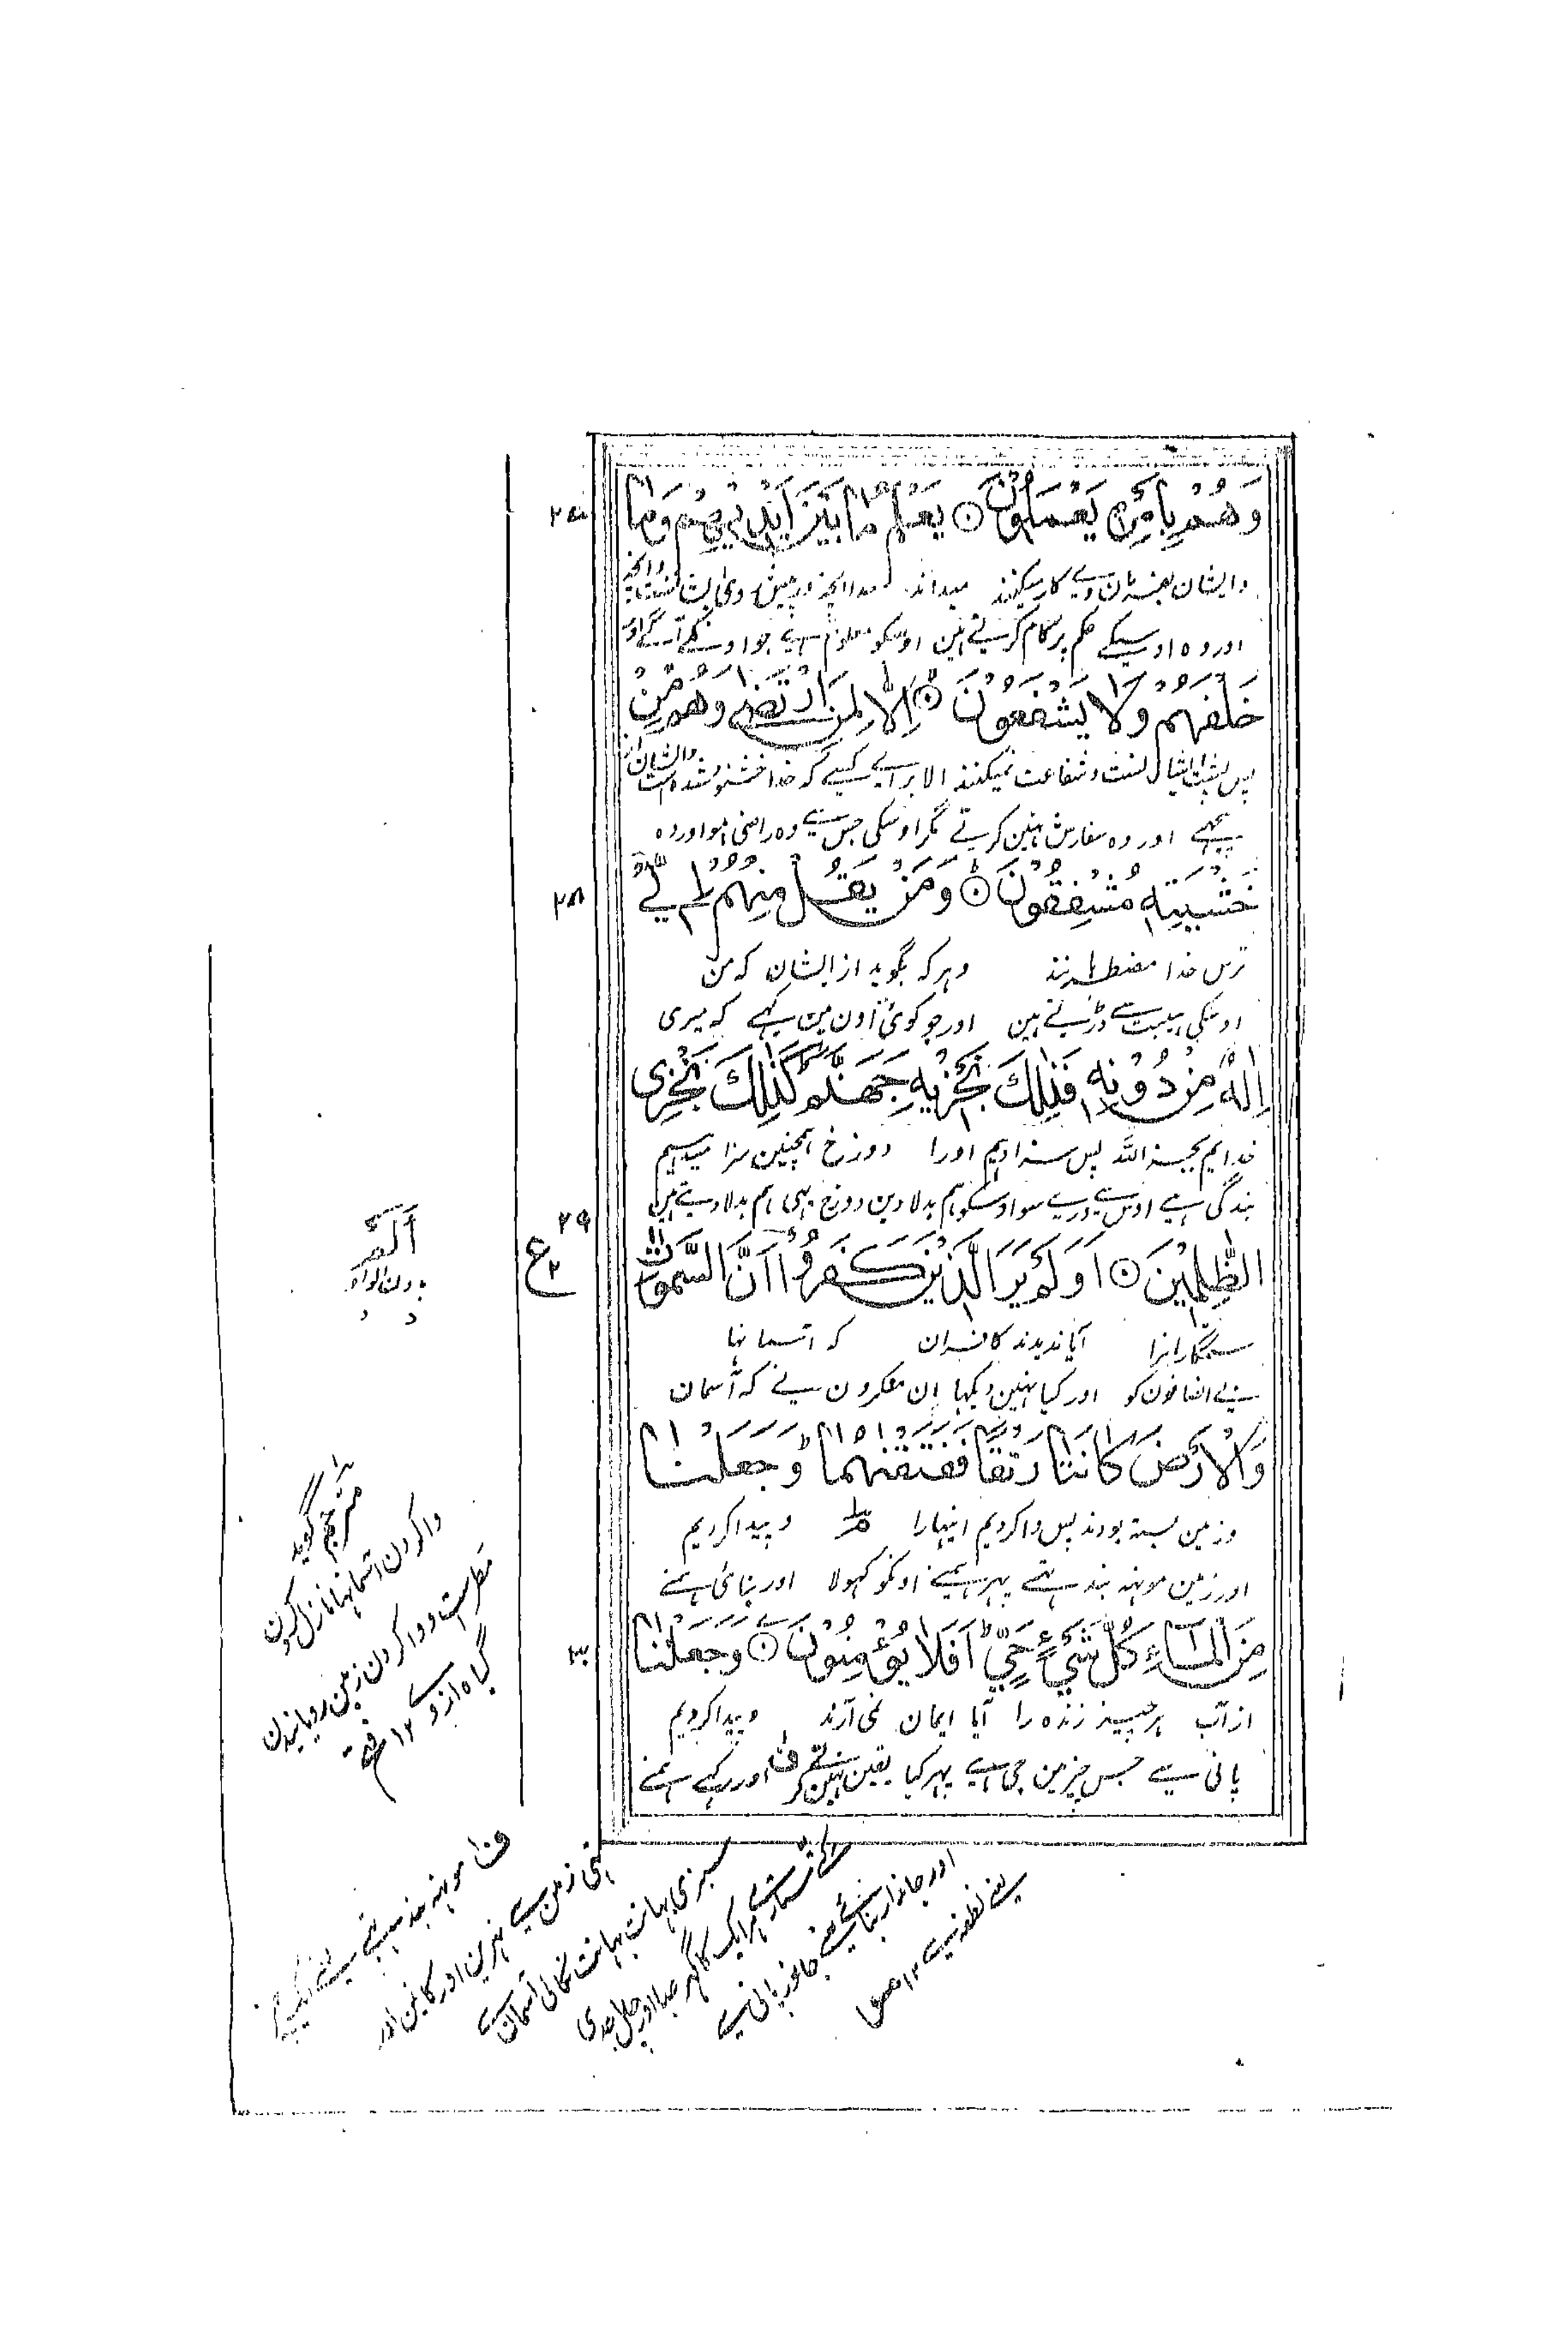 وَهُمْ بِاَمْرِهٖ يَعْمَلُوْنَ ۝ يَعْلَمُ مَا بَيْنَ اَيْدِيْهِمْ وَمَا
وایشان بفرمان وے کار میکنند میداند خدا آنچه در پیش روی ایشان ست وآنچه
اور وہ اوسیکے حکم پر کام کرتے ہین اوسکو معلوم ہے جو اونکے آگے اور
خَلْفَهُمْ وَلَا يَشْفَعُوْنَ ۝ اِلَّا لِمَنِ ارْتَضٰى وَهُمْ مِّنْ
پس پشت ایشان ست و شفاعت نمیکنند الا براے کسیے کہ خدا خشنود شدہ است وایشان از
پیچہے اور وہ سفارش نہین کرتے مگر اوسکی جس سے وہ راضی ہوا اور وہ
خَشْيَتِهٖ مُشْفِقُوْنَ ۝ وَمَنْ يَّقُلْ مِنْهُمْ اِنِّيْٓ
۲۸
ترس خدا مضطربند وہر کہ بگوید از ایشان کہ من
اوسکی ہیبت سے ڈرتے ہین اور جو کوئی اون مین کہے کہ میری
اِلٰهٌ مِّنْ دُوْنِهٖ فَذٰلِكَ نَجْزِيْهِ جَهَنَّمَ كَذٰلِكَ نَجْزِى
خدایم بجز اللہ پس سزا دہیم اورا دوزخ ہمچنین سزا میدہیم
بندگی ہے اوس سے ورے سو اوسکو ہم بدلا دین دوزخ یہی ہم بدلا دیتے ہین
۲۹
الظّٰلِمِيْنَ ۝ اَوَلَمْ يَرَ الَّذِيْنَ كَفَرُوْٓا اَنَّ السَّمٰوٰتِ
ع
۲
ستمگارانرا آیا ندیدند کافران کہ آسمانہا
بے انصافون کو اور کیا نہین دیکہا ان منکرون نے کہ آسمان
وَالْاَرْضَ كَانَتَا رَتْقًا فَفَتَقْنٰهُمَا وَجَعَلْنَا
وزمین بستہ بودند پس وا کردیم اینہارا وپیدا کردیم
اور زمین مونہہ بند تہے پہر ہمنے اونکو کہولا اور بنائی ہمنے
مِنَ الْمَآءِ كُلَّ شَيْءٍ حَيٍّ اَفَلَا يُؤْمِنُوْنَ ۝ وَجَعَلْنَا
از آب ہر چیز زندہ را آیا ایمان نمی آرند وپیدا کردیم
پانی سے جس چیز مین جی ہے پہر کیا یقین نہین کرتے ف اور رکہے ہمنے
اَلَمْ
بدون الواو
مترجم گوید
وا کردن آسمانہا نازل کردن
مطرست و وا کردن زمین رویانیدن
گیاہ ازوے ۱۲ فتح
ف مونہہ بند تہے یعنے ایک چیز
تہی زمین سے نہرین اور کانین اور
سبزی بہانت بہانت نکالی آسمان سے
کئی ستارے ہر ایک کا گہر جدا اور چال جدی
اور جاندار بنائے یعنے جانور پانی سے
یعنے نطفہ سے ۱۲ منہ